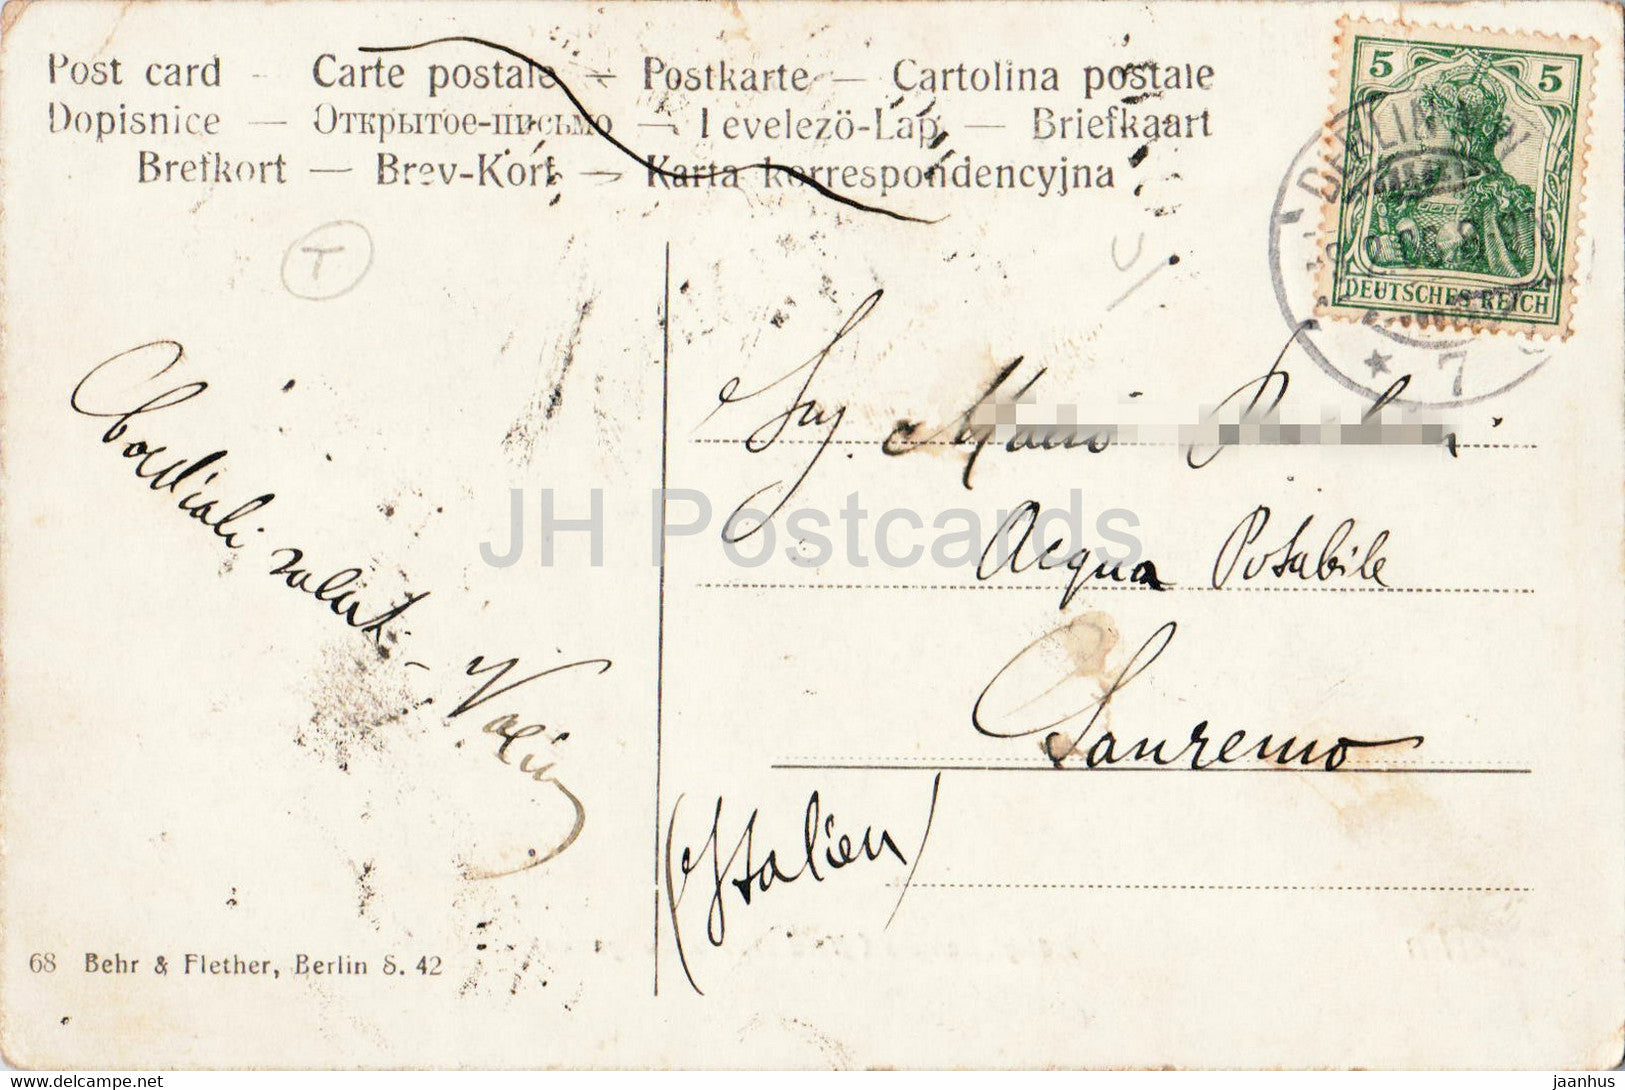 Post card – Carte postale – Postkarte – Cartolina postale
Dopisnice – Открытое-письмо – Levelezö-Lap – Briefkaart
Brefkort – Brev-Kort – Karta korrespondencyjna
5 5
DEUTSCHES REICH
BERLIN
* 7
T
Cordiali saluti –
Sig. Mario
Acqua Potabile
Sanremo
(Italien)
JH Postcards
68 Behr & Flether, Berlin S. 42
www.delcampe.net
jaanhus